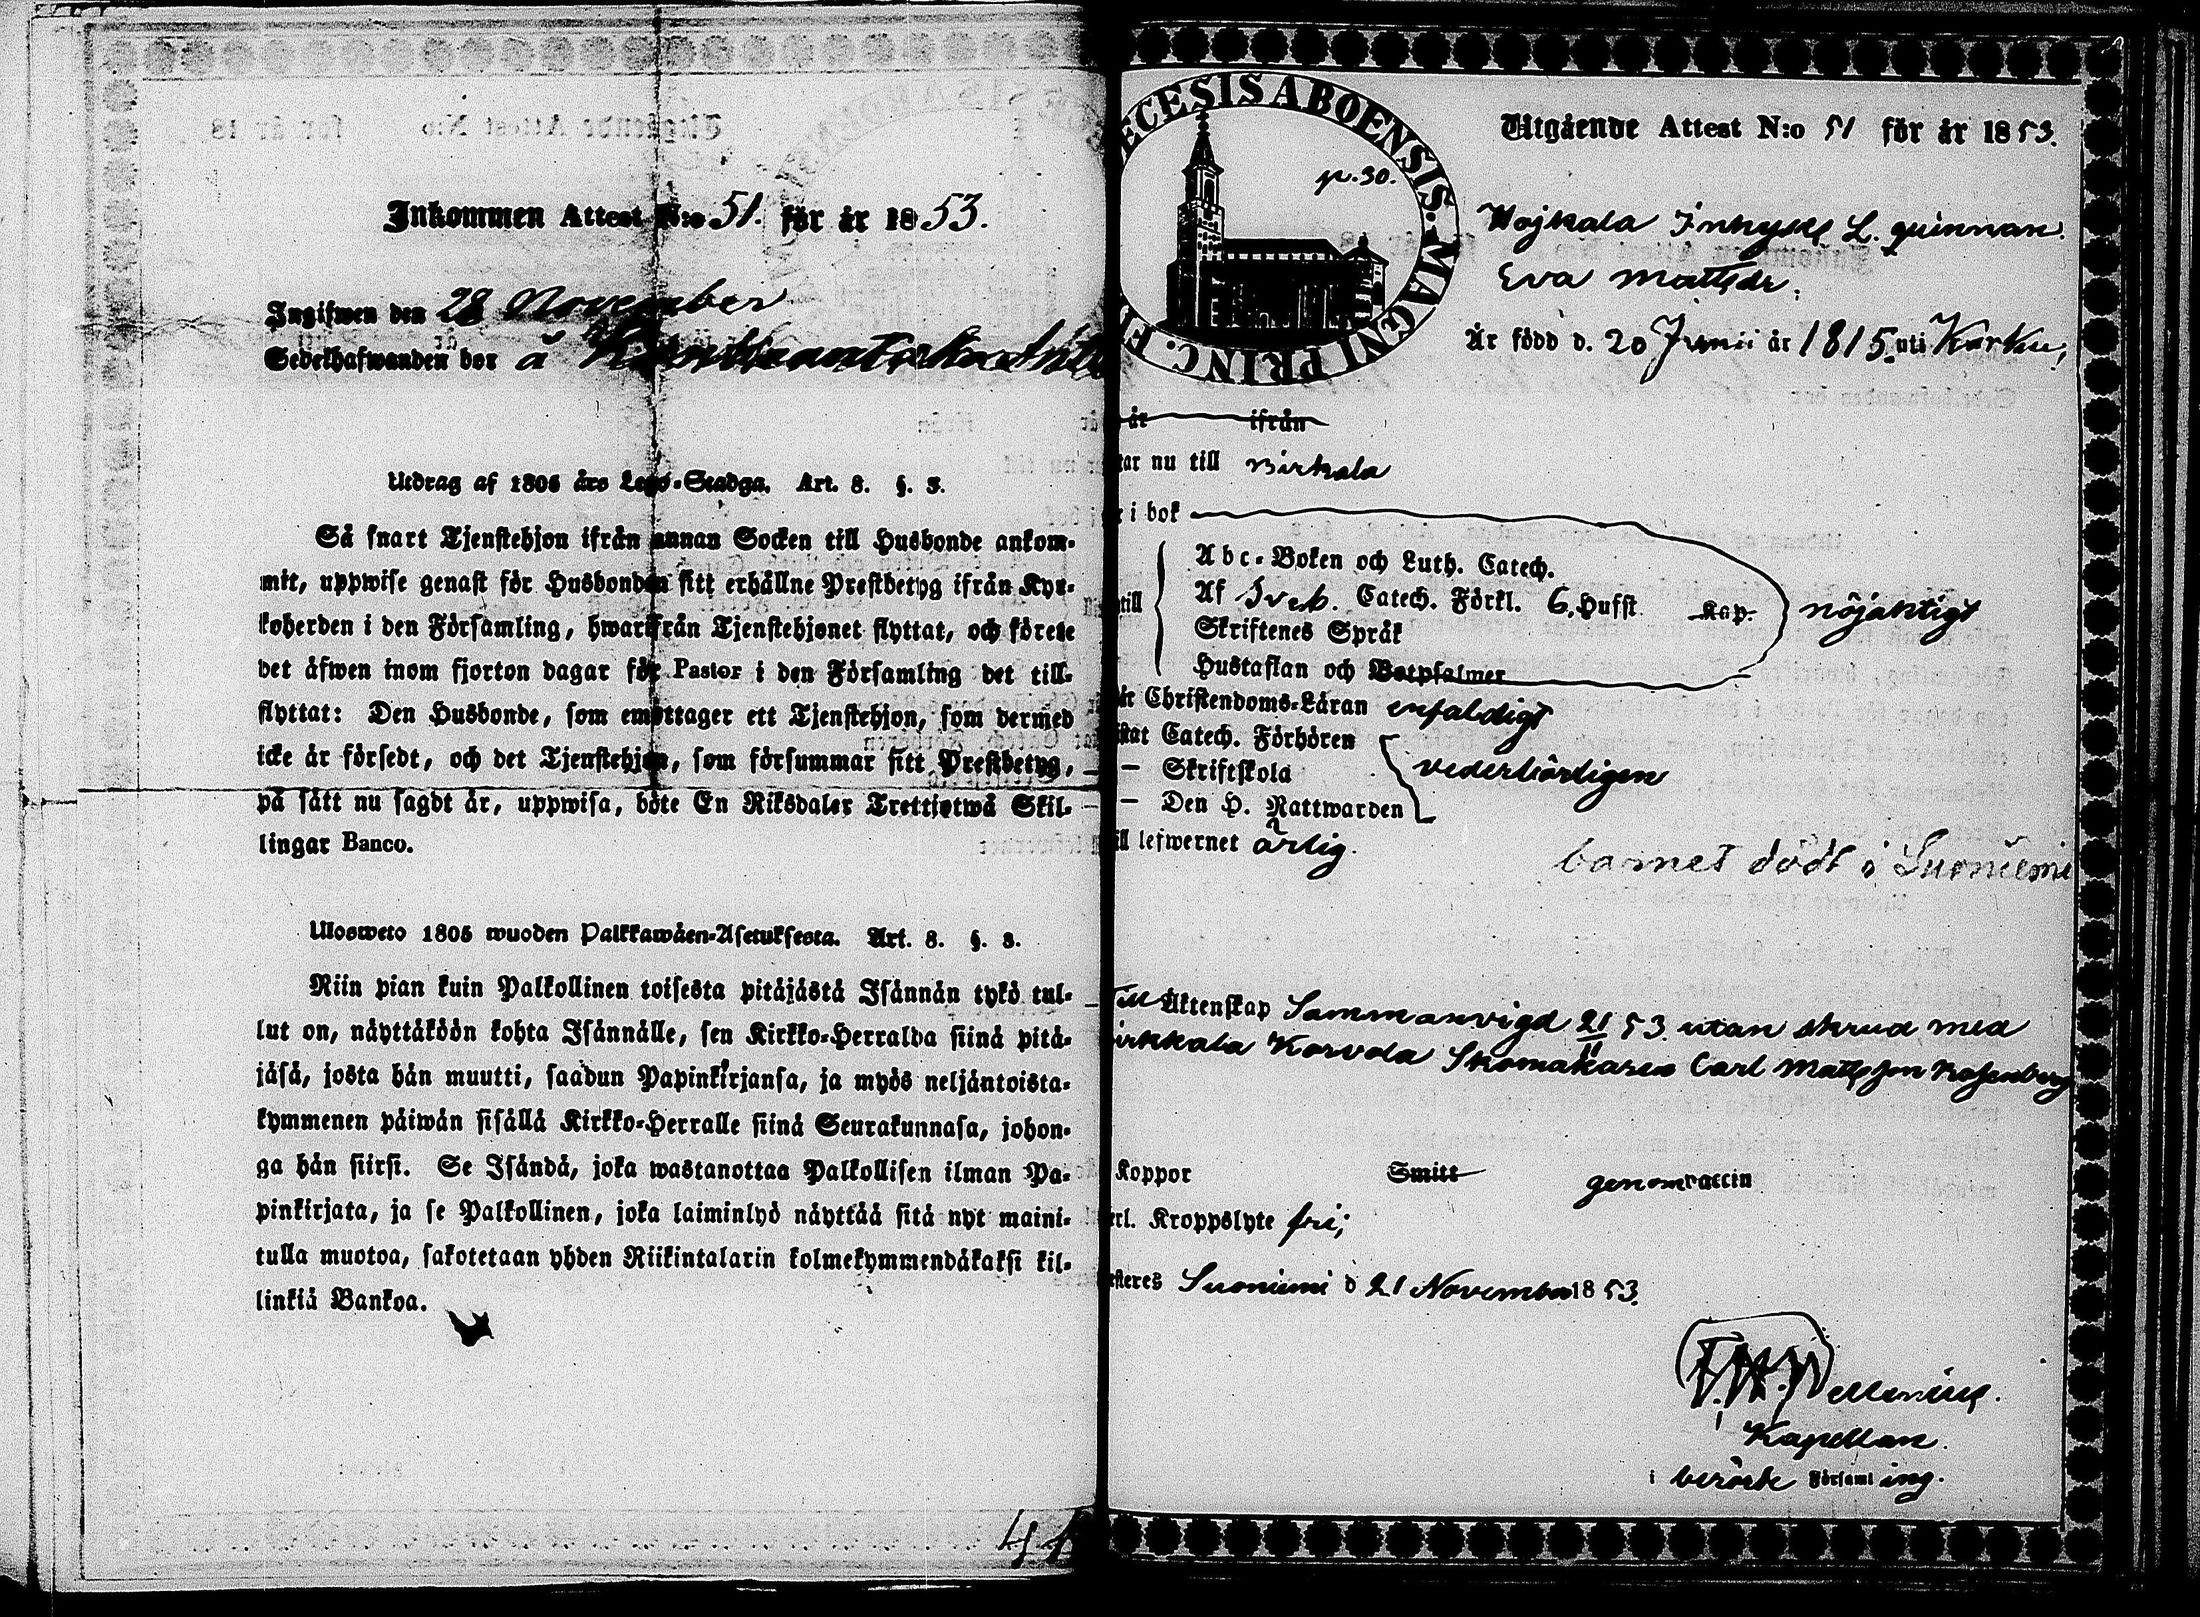 Inkommen Attest N:o 51. för år 1853.
Ingifwen den 28 November
Sedelhafwanden bor å
Utdrag af 1805 års Lego-Stadga. Art. 8. §. 3.
Så snart Tjenstehjon ifrån annan Socken till Husbonde ankom-
mit, uppwise genast för Husbonden sitt erhållne Prestbetyg ifrån Kyr-
koherden i den Församling, hwarifrån Tjenstehjonet flyttat, och förete
det äfwen inom fjorton dagar för Pastor i den Församling det till-
flyttat: Den Husbonde, som emottager ett Tjenstehjon, som dermed
icke är försedt, och det Tjenstehjon, som försummar sitt Prestbetyg,
på sätt nu sagdt är, uppwisa, böte En Riksdaler Trettiotwå Skil-
lingar Banco.
Ulosweto 1805 wuoden Palkkawäen-Asetuksesta. Art. 8. §. 3.
Niin pian kuin Palkollinen toisesta pitäjästä Isännän tykö tul-
lut on, näyttäköön kohta Isännälle, sen Kirkko-Herralda siinä pitä-
jäsä, josta hän muutti, saadun Papinkirjansa, ja myös neljäntoista-
kymmenen päiwän sisällä Kirkko-Herralle siinä Seurakunnasa, johon-
ga hän siirsi. Se Isändä, joka wastanottaa Palkollisen ilman Pa-
pinkirjata, ja se Palkollinen, joka laiminlyö näyttää sitä nyt maini-
tulla muotoa, sakotetaan yhden Riikintalarin kolmekymmendäkaksi kil-
linkiä Bankoa.
44
ECESIS ABOENSIS. MAGNI PRINC. F
p. 30.
Utgående Attest N:o 51 för år 1853.
Inhyses L. quinnan.
Eva Mattsdr.
Är född d. 20 Junii år 1815. uti Karku,
år ifrån
tar nu till Birkala
i bok
Abc-Boken och Luth. Catech.
till Af Sveb. Catech. Förkl. 6. Hufst. Kap. nöjaktigt
Skriftenes Språk
Hustaflan och Botpsalmer
Christendoms-Läran enfaldigt
stat Catech. Förhören
— Skriftskola vederbörligen
— Den H. Nattwarden
ill lefwernet ärlig.
barnet dödt i Suoniemi
Till Äktenskap Sammanvigd 21/11 53. utan skrud med
irkkala Korvola Skomakaren Carl Mattsson Rosenberg
Koppor Smitt genom vaccin
erl. Kroppslyte fri;
steres Suoniemi d 21 November 1853.
Kapellan.
i berörde Församling.